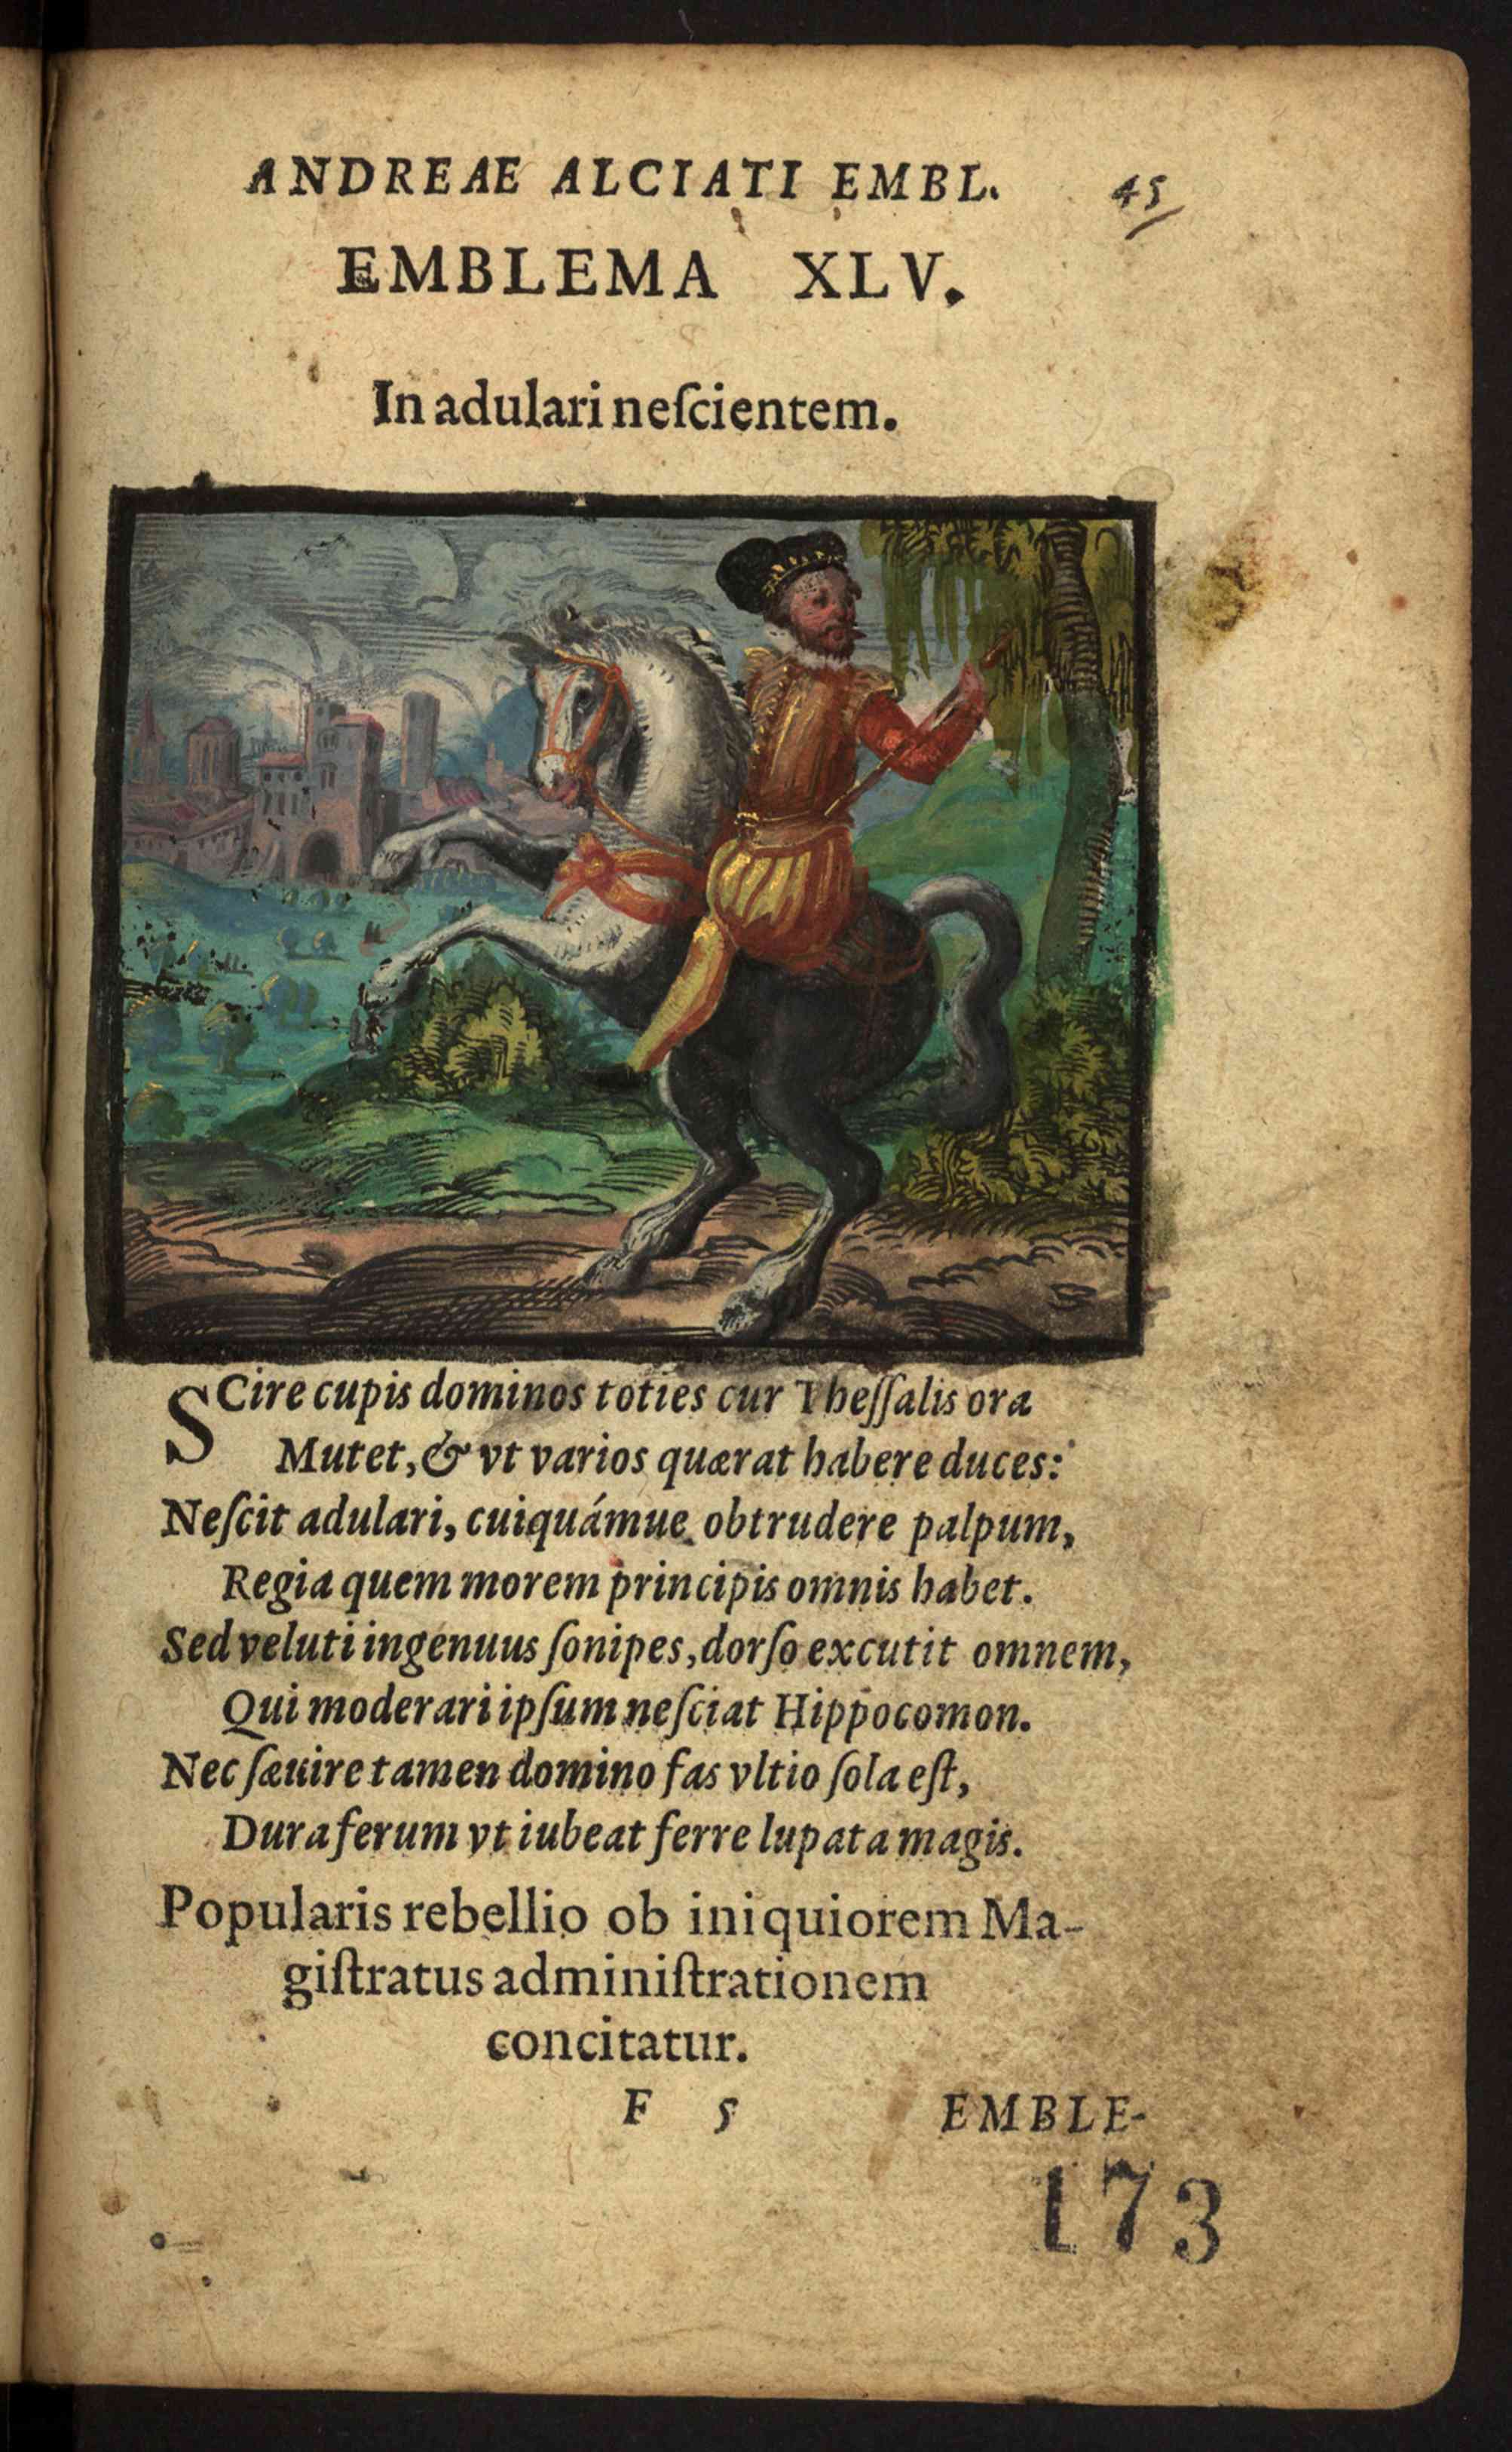 ANDREAE ALCIATI EMBL. 45
EMBLEMA XLV.
In adulari neſcientem.
SCire cupis dominos toties cur Theſſalis ora
Mutet, & vt varios quærat habere duces:
Neſcit adulari, cuiquámue obtrudere palpum,
Regia quem morem principis omnis habet.
Sed veluti ingenuus ſonipes, dorſo excutit omnem,
Qui moderari ipſum neſciat Hippocomon.
Nec ſæuire tamen domino fas vltio ſola eſt,
Dura ferum vt iubeat ferre lupata magis.
Popularis rebellio ob iniquiorem Ma-
giſtratus adminiſtrationem
concitatur.
F 5 EMBLE-
173